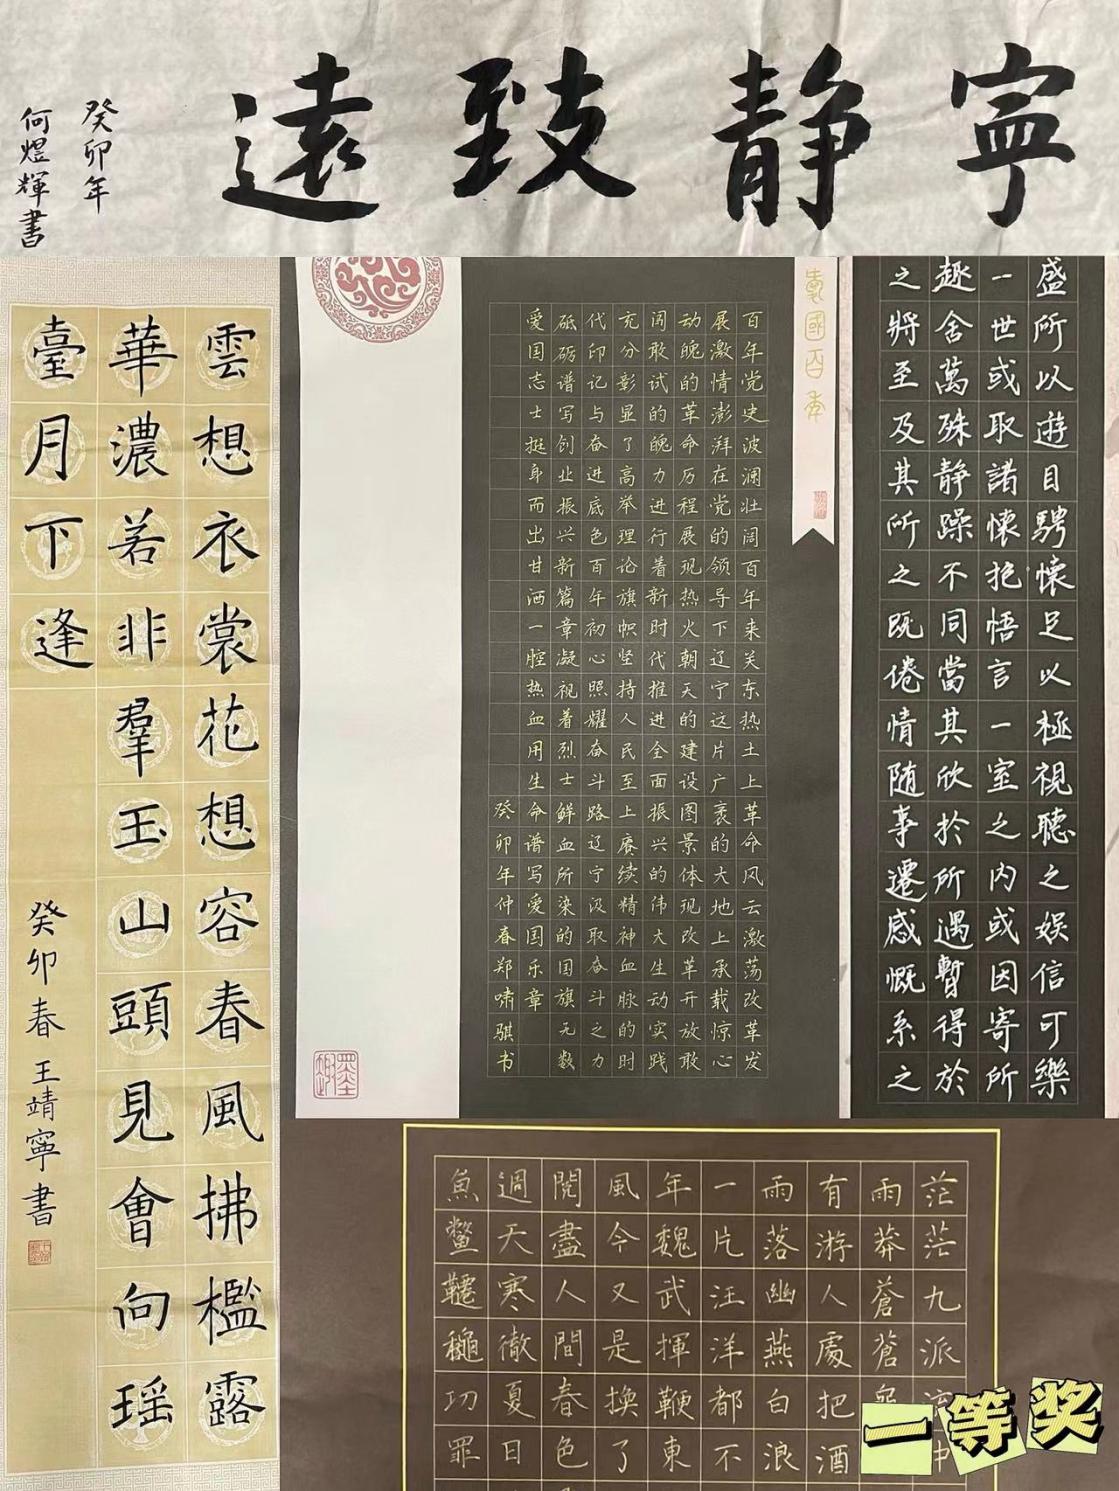 寧静致遠
癸卯年
何煜輝書
雲想衣裳花想容春風拂檻露
華濃若非羣玉山頭見會向瑶
臺月下逢
癸卯春王靖寧書
愛國百年
百年党史波澜壮阔百年来关东热土上革命风云激荡改革发
展激情澎湃在党的领导下辽宁这片广袤的大地上承载惊心
动魄的革命历程展现热火朝天的建设图景体现改革开放敢
闯敢试的魄力进行着新时代推进全面振兴的伟大生动实践
充分彰显了高举理论旗帜坚持人民至上赓续精神血脉的时
代印记与奋进底色百年初心照耀奋斗路辽宁汲取奋斗之力
砥砺谱写创业振兴新篇章凝视着烈士鲜血所染的国旗无数
爱国志士挺身而出甘洒一腔热血用生命谱写爱国乐章
癸卯年仲春郑啸骐书
盛所以遊目騁懷足以極視聽之娱信可樂
一世或取諸懷抱悟言一室之内或因寄所
趣舍萬殊静躁不同當其欣於所遇暫得於
之將至及其所之既倦情随事遷感慨系之
茫茫九派
雨莽蒼蒼
有游人處把酒
雨落幽燕白浪
一片汪洋都不
年魏武揮鞭東
風今又是換了
閱盡人間春色
週天寒徹夏日
魚鱉韆龝功罪
一等奖